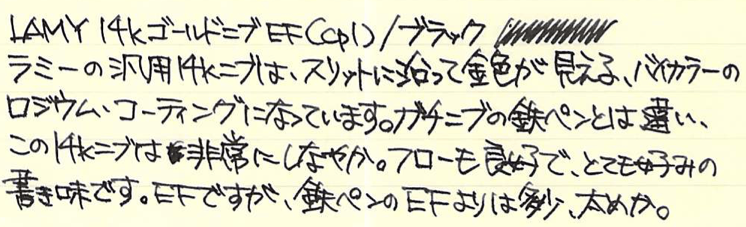 LAMY 14kゴールドニブEF(cp1)/ブラック
ラミーの汎用14kニブは、スリットに沿って金色が見える、バイカラーの
ロジウム・コーティングになっています。ガチニブの鉄ペンとは違い、
この14kニブは非常にしなやか。フローも良好で、とても好みの
書き味です。EFですが、鉄ペンのEFよりは多少、太めか。